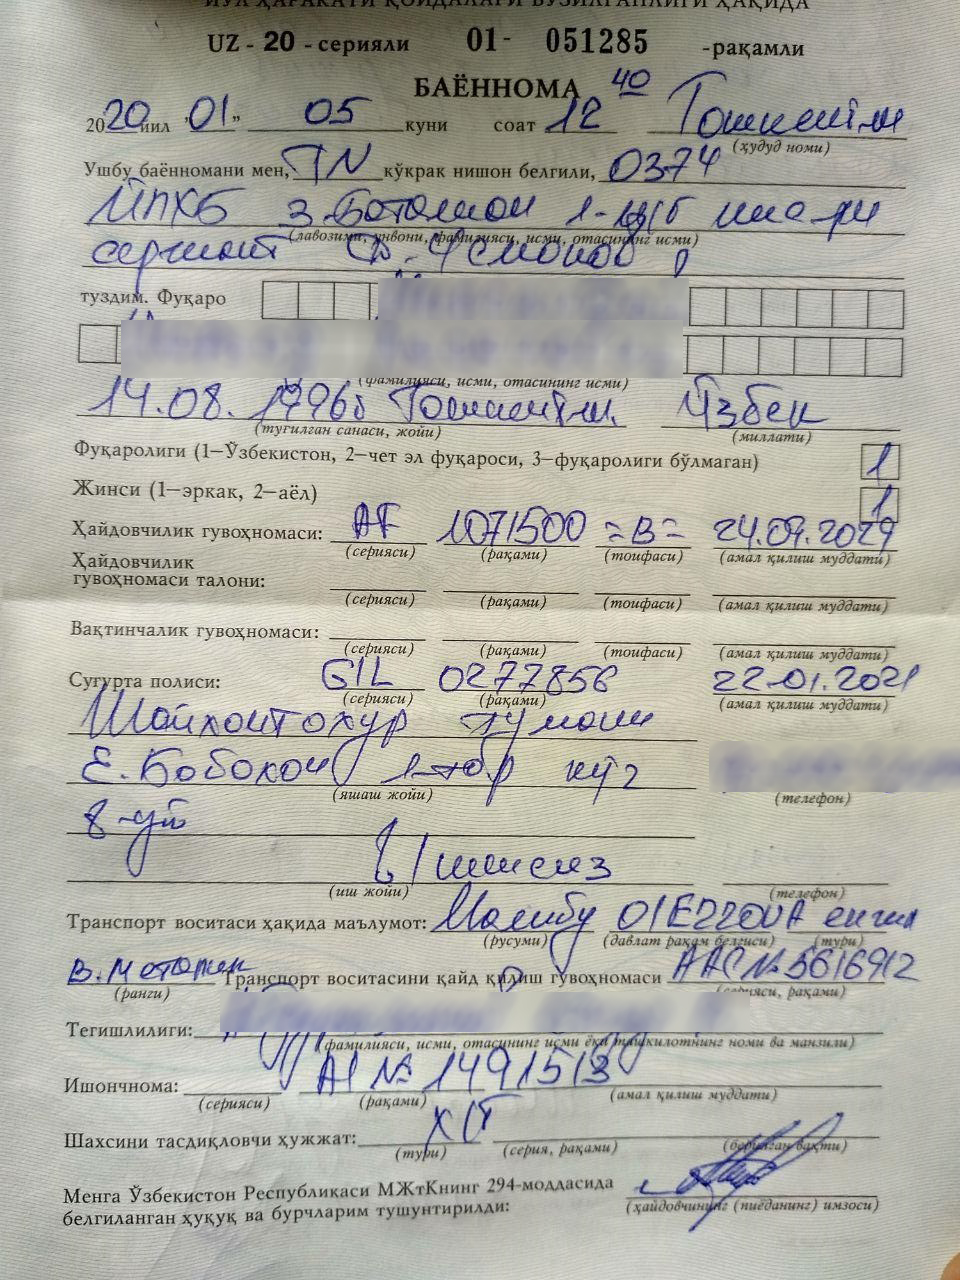 ЙЎЛ ҲАРАКАТИ ҚОИДАЛАРИ БУЗИЛГАНЛИГИ ҲАҚИДА
UZ - 20 - серияли 01- 051285 -рақамли
БАЁННОМА
2020 йил "01" 05 куни соат 12 40 Тошкент ш
(ҳудуд номи)
Ушбу баённомани мен, TN кўкрак нишон белгили, 0374
ЙПХБ 3-Боталион
(лавозими, унвони, фамилияси, исми, отасининг исми)
сержант Усмонов
туздим. Фуқаро
(фамилияси, исми, отасининг исми)
14.08.1996й Тошкент ш. Ўзбек
(туғилган санаси, жойи) (миллати)
Фуқаролиги (1—Ўзбекистон, 2—чет эл фуқароси, 3—фуқаролиги бўлмаган) 1
Жинси (1—эркак, 2—аёл) 1
Ҳайдовчилик гувоҳномаси: AF 1071500 =B= 24.07.2029
(серияси) (рақами) (тоифаси) (амал қилиш муддати)
Ҳайдовчилик
гувоҳномаси талони:
(серияси) (рақами) (тоифаси) (амал қилиш муддати)
Вақтинчалик гувоҳномаси:
(серияси) (рақами) (тоифаси) (амал қилиш муддати)
Суғурта полиси: GIL 0277856 22.01.2021
(серияси) (рақами) (амал қилиш муддати)
Шайхонтохур тумани
Е. Бобохон 1-тор кўч
(яшаш жойи) (телефон)
8-уй
Ишсиз
(иш жойи) (телефон)
Транспорт воситаси ҳақида маълумот: Малибу 01E220UA енгил
(русуми) (давлат рақам белгиси) (тури)
Транспорт воситасини қайд қилиш гувоҳномаси AAC № 5616912
(ранги) (серияси, рақами)
Тегишлилиги:
(фамилияси, исми, отасининг исми ёки ташкилотнинг номи ва манзили)
Ишончнома: AI № 1491513
(серияси) (рақами) (амал қилиш муддати)
Шахсини тасдиқловчи ҳужжат:
(тури) (серия, рақами) (берилган вақти)
Менга Ўзбекистон Республикаси МЖтКнинг 294-моддасида
белгиланган ҳуқуқ ва бурчларим тушунтирилди: (ҳайдовчининг (пиёданинг) имзоси)